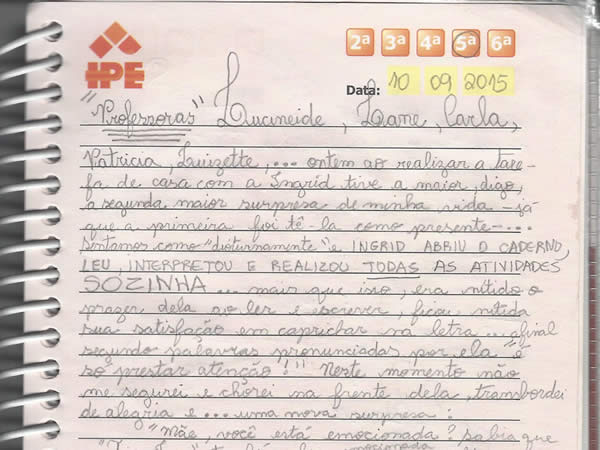 IPE
2ª 3ª 4ª 5ª 6ª
Data: 10 09 2015
"Professoras" Lucineide, Lane, Carla,
Patrícia, Luizette, ... ontem ao realizar a tare-
fa de casa com a Ingrid tive a maior, digo,
a segunda maior surpresa de minha vida - já
que a primeira foi tê-la como presente - ...
Sentamos como "diuturnamente" e INGRID ABRIU O CADERNO,
LEU, INTERPRETOU E REALIZOU TODAS AS ATIVIDADES
SOZINHA... mais que isso, era nítido o
prazer dela ao ler e escrever, ficou nítida
sua satisfação em caprichar na letra... afinal
segundo palavras pronunciadas por ela "é
só prestar atenção!" Neste momento não
me segurei e chorei na frente dela, transbordei
de alegria e... uma nova surpresa:
"Mãe, você está emocionada? sabia que
emocionada